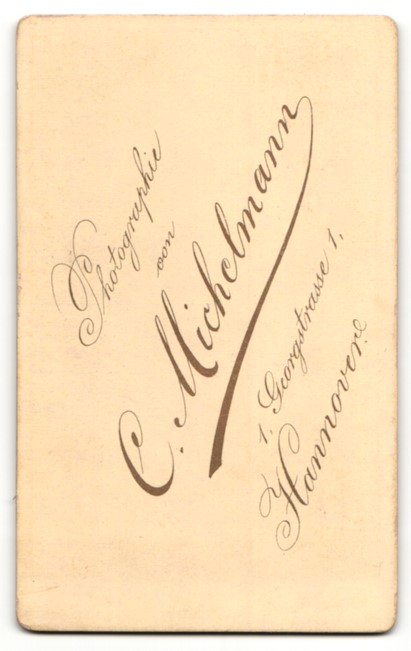 Photographie
von
C. Michelmann
1. Georgstrasse 1.
Hannover.